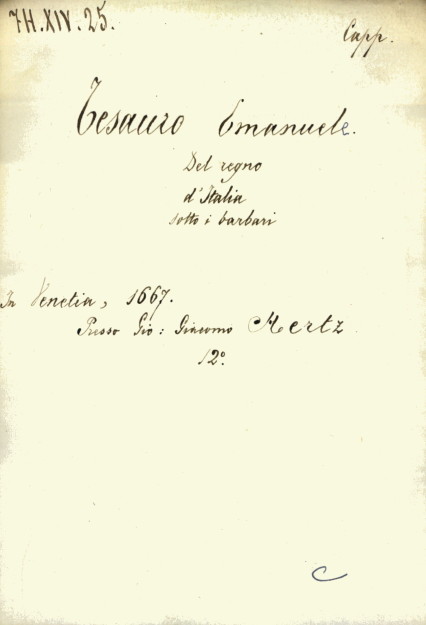 7H.XIV.25.
Capp.
Tesauro Emanuele.
Del regno
d'Italia
sotto i barbari
In Venetia, 1667.
Presso Gio: Giacomo Hertz
12º.
C